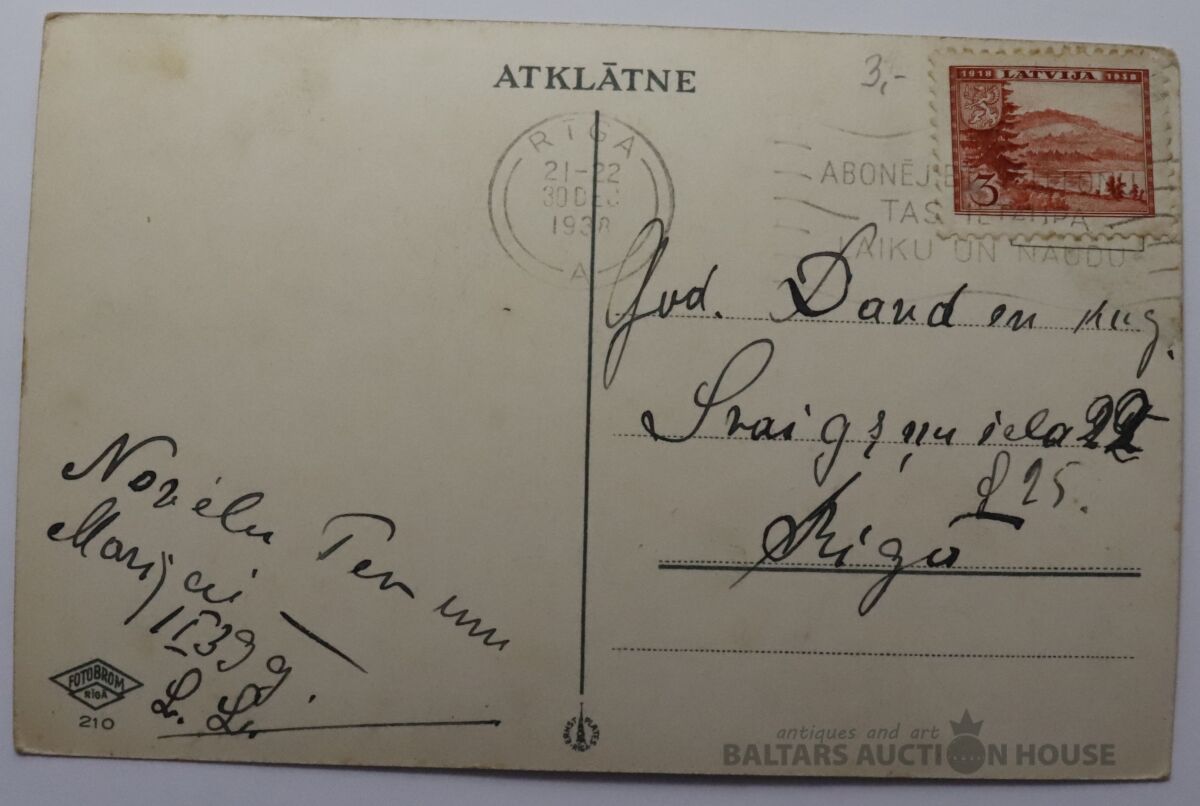 ATKLĀTNE
3,-
1918 LATVIJA 1938
3
RĪGA
21-22
30 DEC
1938
A
ABONĒJ
TAS IETAUPA
LAIKU UN NAUDU
God. Dand en kug.
Svaigžņu iela 22
d 25.
Rīgā
Novēlu Tev un
Marijai
1 I 39 g.
L. L.
FOTOBROM
RIGĀ
210
ERNST PLATES RIGA
antiques and art
BALTARS AUCTION HOUSE